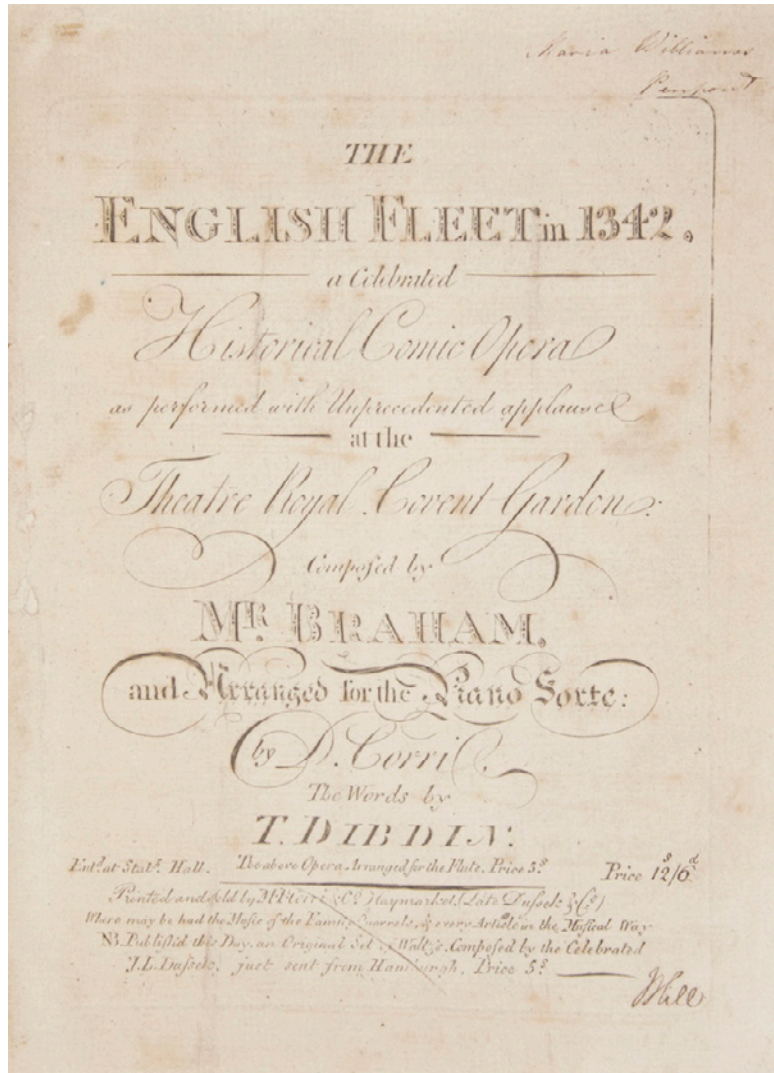 Maria Williams
Penpont
THE
ENGLISH FLEET in 1342.
a Celebrated
Historical Comic Opera
as performed with Unprecedented applause
at the
Theatre Royal Covent Garden:
Composed by
Mr. BRAHAM,
and Arranged for the Piano Forte:
by D. Corri.
The Words by
T. DIBDIN.
Entd. at Statrs. Hall. The above Opera Arranged for the Flute. Price 5s Price 12s/6d
Printed and sold by M. Corri & Co. Haymarket (Late Dussek & Co.)
Where may be had the Music of the Family Quarrels, & every Article in the Musical Way
NB. Publish'd this Day, an Original Set of Waltz's Composed by the Celebrated
J. L. Dussek, just sent from Hamburgh, Price 5s